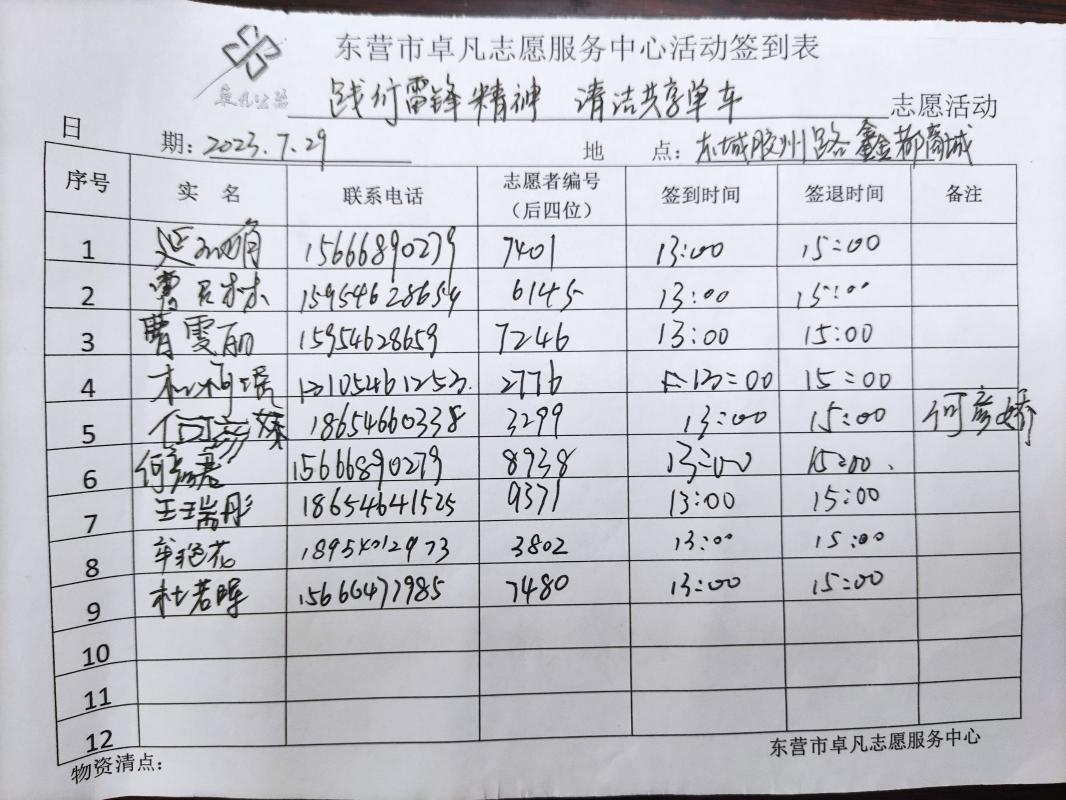 东营市卓凡志愿服务中心活动签到表
卓凡公益
践行雷锋精神 清洁共享单车 志愿活动
日期：2023.7.29 地点：东城胶州路鑫都商城
序号 实名 联系电话 志愿者编号（后四位） 签到时间 签退时间 备注
1 15666890279 7401 13:00 15:00
2 15954628654 6145 13:00 15:00
3 曹雯丽 15954628659 7246 13:00 15:00
4 2776 13:00 15:00
5 18654660338 3299 13:00 15:00 何彦娇
6 15666890279 8938 13:00 15:00
7 王瑞彤 18654641525 9371 13:00 15:00
8 18954012973 3802 13:00 15:00
9 杜若晖 15666477985 7480 13:00 15:00
10
11
12
物资清点：
东营市卓凡志愿服务中心